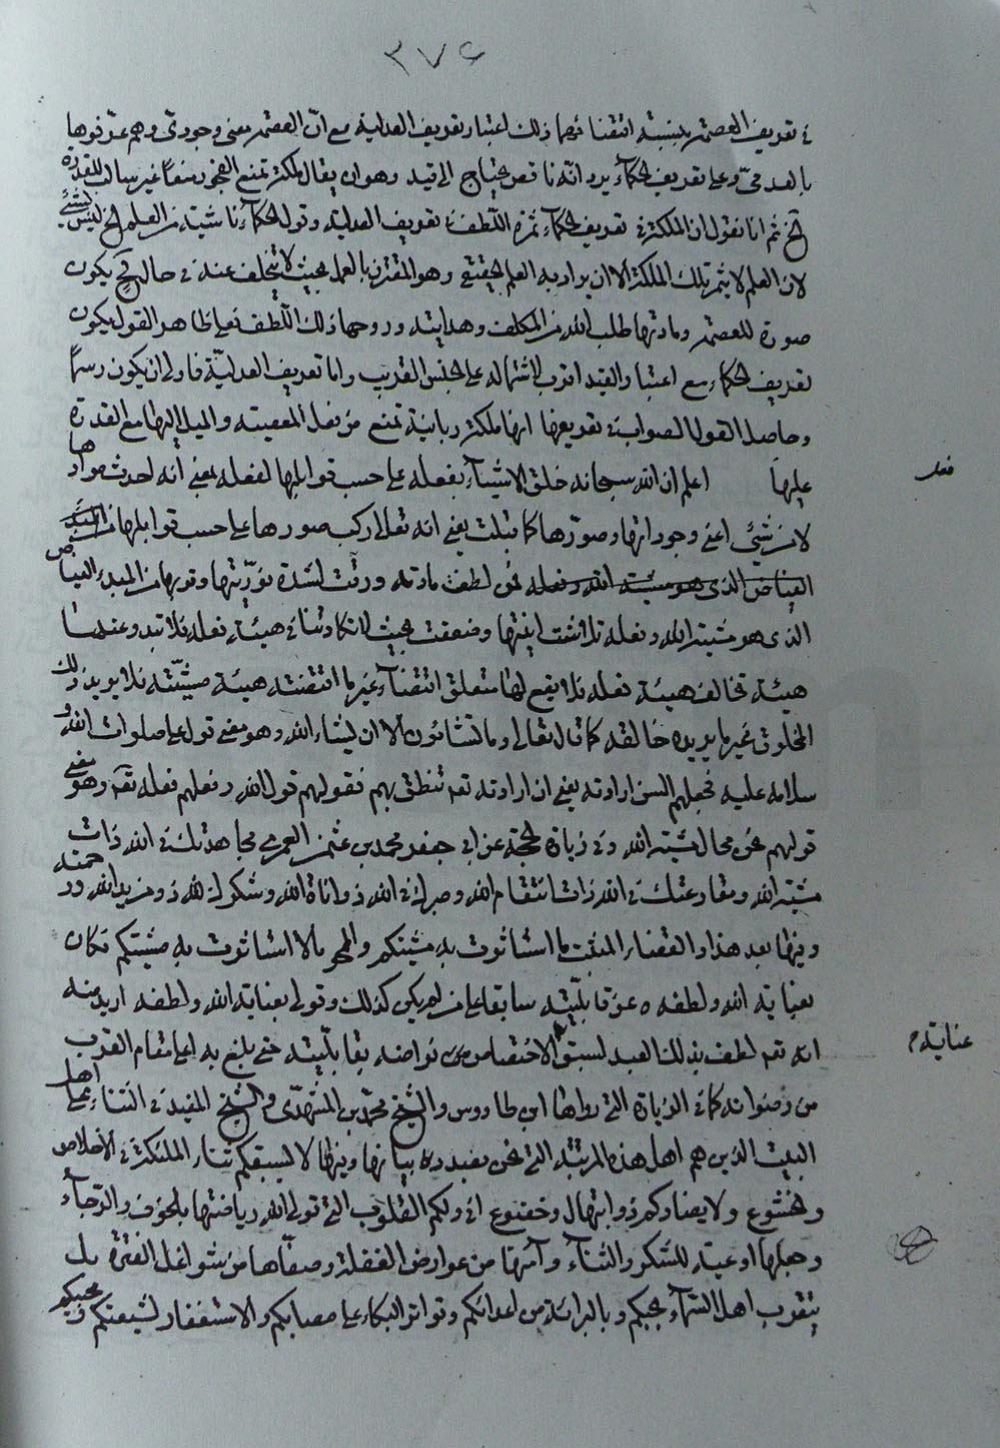 ٣٧٤
في تعريف العصمة بنسبة اقتضائهما ذلك اعتبار تعريف العدلية مع ان العصمة معنى وجودي وهم عرّفوها
بالعدمي وعلى تعريف الحكماء يرد انه ناقص يحتاج الى قيد وهو ان يقال ملكة تمنع الفجور منعاً غير سالب للقدرة
الخ ثم انا نقول ان الملكة في تعريف الحكماء ثمرة اللطف في تعريف العدلية وقول الحكماء ناشية من العلم الخ ليس بشيء
لان العلم لا يثمر تلك الملكة الا ان يراد به العلم الحقيقي وهو المقترن بالعمل بحيث لا يتخلف عنه في حال فح يكون
صورة للعصمة ومادتها طلب الله من المكلف وهدايته وروحها ذلك اللطف فعلى ظاهر القول يكون
تعريف الحكماء مع اعتبار القيد اقرب لاشتماله على الجنس القريب واما تعريف العدلية فاولى ان يكون رسماً
وحاصل القول الصواب في تعريفها انها ملكة ربانية تمنع من فعل المعصية والميل اليها مع القدرة
عليها اعلم ان الله سبحانه خلق الاشياء بفعله على حسب قوابلها لفعله بمعنى انه احدث موادها
لا من شيء اعني وجوداتها وصوّرها كما قبلت يعني انه تعالى ركب صورها على حسب قوابلها من المبدء
الفياض الذي هو مشية الله وفعله فمن لطفت مادته ورقت لشدة نوريتها وقربها من المبدء الفياض
الذي هو مشية الله وفعله تلاشت انيتها وضعفت بحيث لا تكاد تنافي هيئة فعله فلا تبدو عندها
هيئة تخالف هيئة فعله فلا يقع لها متعلق اقتضاء غير ما اقتضته هيئة مشيته فلا يريد ذلك
المخلوق غير ما يريده خالقه كما قال تعالى وما تشاؤن الا ان يشاء الله وهو معنى قول علي صلوات الله و
سلامه عليه فجعلهم السن ارادته يعني ان ارادته تعالى تنطق بهم فقولهم قول الله وفعلهم فعله تعالى وهو معنى
قولهم نحن محال مشية الله وفي زيارة الحجة عن ابي جعفر محمد بن عثمن العمري مجاهدتك في الله ذات
مشية الله ومقارعتك في الله ذات انتقام الله وصبرك في الله ذو اناة الله وشكرك لله ذو مزيد الله ورحمته
وفيها بعد هذا والقضاء المثبت ما استاثرت به مشيتكم والمحو ما لا استاثرت به مشيتكم فكان
بعناية الله ولطفه عوقابليته سابقا على من لم يكن كذلك وقولي بعناية الله ولطفه اريد منه
انه تعالى لطف بذلك العبد لسبق الاختصاص تواضعه بقابليته حتى بلغ به اعلى مقام القرب
من رضوانه كما في الزيارة التي رواها ابن طاووس والشيخ محمد بن المشهدي والشيخ المفيد في الثناء على اهل
البيت الذين هم اهل هذه المرتبة التي نحن بصدد بيانها وفيها لا يسبقكم ثناء الملئكة في الاخلاص
والخشوع ولا يضادكم ذو ابتهال وخضوع انى ولكم القلوب التي تولى الله رياضتها بالخوف والرجاء
وجعلها اوعية للشكر والثناء وآمنها من عوارض الغفلة وصفّاها من شواغل الفترة بل
يتقرب اهل السماء بحبكم وبالبراءة من اعدائكم وتواتر البكاء على مصابكم والاستغفار لشيعتكم ومحبيكم
فصل
عنايته م